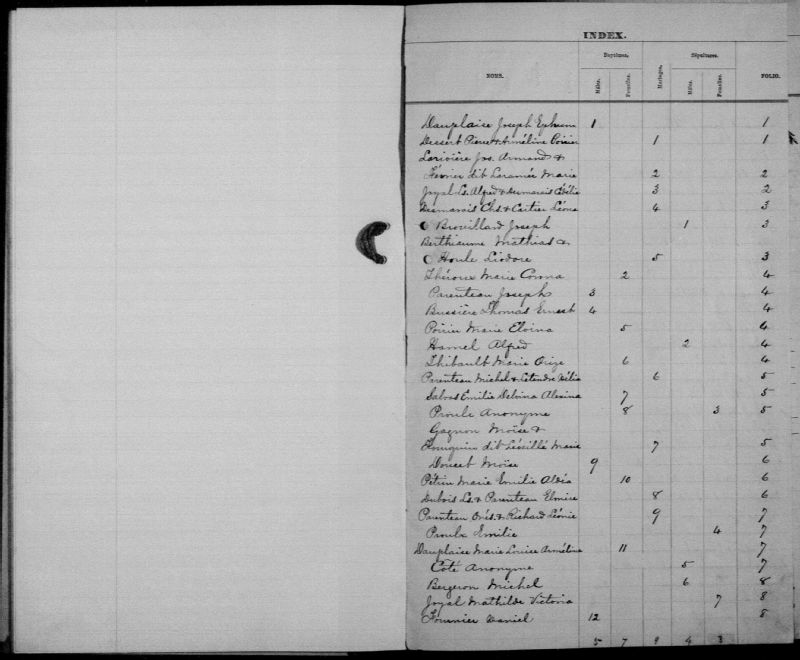 INDEX.
NOMS. Baptêmes. Mariages. Sépultures. FOLIO.
Mâles. Femelles. Mâles. Femelles.
Dauplaise Joseph Ephrem 1 1
Dessert Pierre & Arméline Poirier 1 1
Larivière Jos. Armand &
Février dit Laramée Marie 2 2
Joyal Ls. Alfred & Desmarais Célélie 3 2
Desmarais Chs. & Cartier Léona 4 3
Brouillard Joseph 1 3
Berthiaume Mathias &
Houle Liodore 5 3
Théroux Marie Corona 2 4
Parenteau Joseph 3 4
Bussière Thomas Ernest 4 4
Poirier Marie Elvina 5 4
Hamel Alfred 2 4
Thibault Marie Orize 6 4
Parenteau Michel & Letendre Délia 6 5
Salvas Emilie Delvina Alexina 7 5
Proulx Anonyme 8 3 5
Gagnon Moïse &
dit Léveillé Marie 7 5
Doucet Moïse 9 6
Pétrin Marie Emilie Aldéa 10 6
Dubois Ls. & Parenteau Elmire 8 6
Parenteau Onés. & Richard Léonie 9 7
Proulx Emilie 4 7
Dauplaise Marie Louise Arméline 11 7
Côté Anonyme 5 7
Bergeron Michel 6 8
Joyal Mathilde Victoria 7 8
Fournier Daniel 12 8
5 7 9 4 3